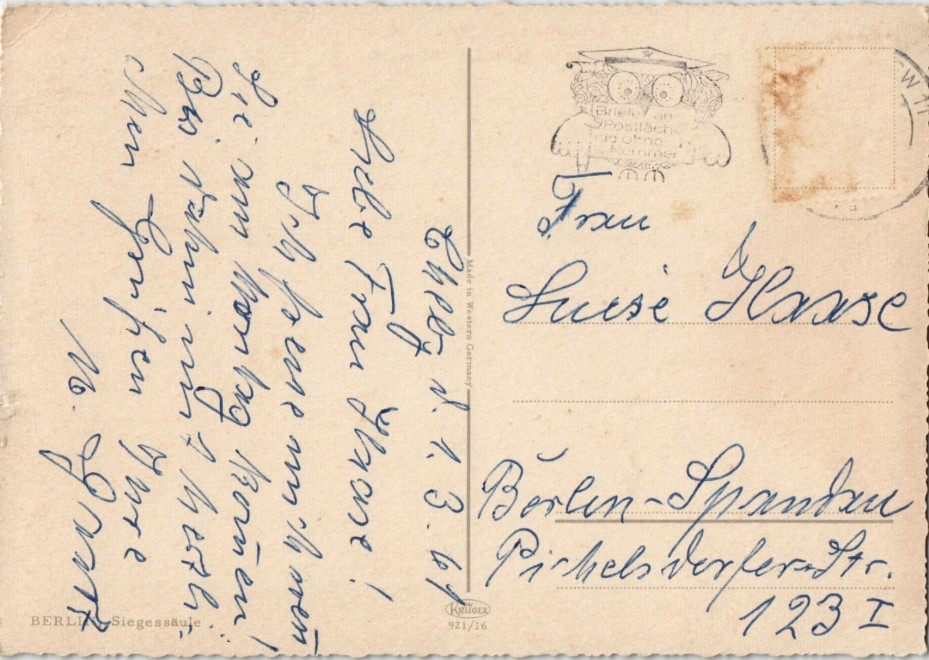 d. 1. 3. 61
Liebe Frau Haase!
Ich freue mich wenn
Sie am Montag kommen!
Bis dahin mit herzli-
chen Grüßen Ihre
M.
BERLIN Siegessäule
Made in Western Germany
KRÜGER
921/16
Briefe an
Postfäche
nie ohne
Nummer
SW 11
Frau
Luise Haase
Berlin-Spandau
Pichelsdorfer-Str.
123 I